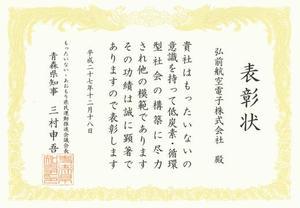 表彰状
弘前航空電子株式会社 殿
貴社はもったいないの
意識を持って低炭素・循環
型社会の構築に尽力
され他の模範であります
その功績は誠に顕著で
ありますので表彰します
平成二十七年十二月十八日
もったいない・あおもり県民運動推進会議会長
青森県知事 三村申吾